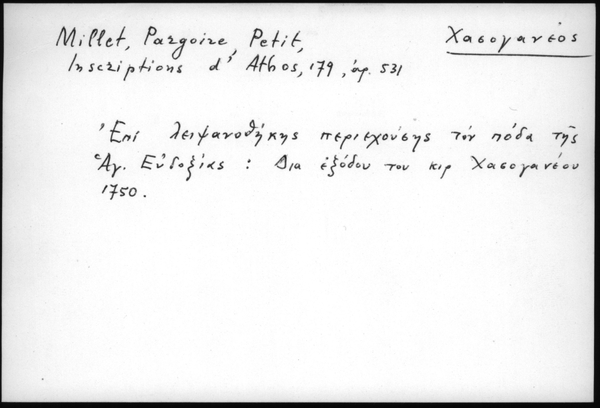 Millet, Pargoire, Petit, Χασογανέος
Inscriptions d' Athos, 179, ἀρ. 531
Ἐπί λειψανοθήκης περιεχούσης τόν πόδα τῆς
Ἁγ. Εὐδοξίας : Δια ἐξόδου του κιρ Χασογανέου
1750.